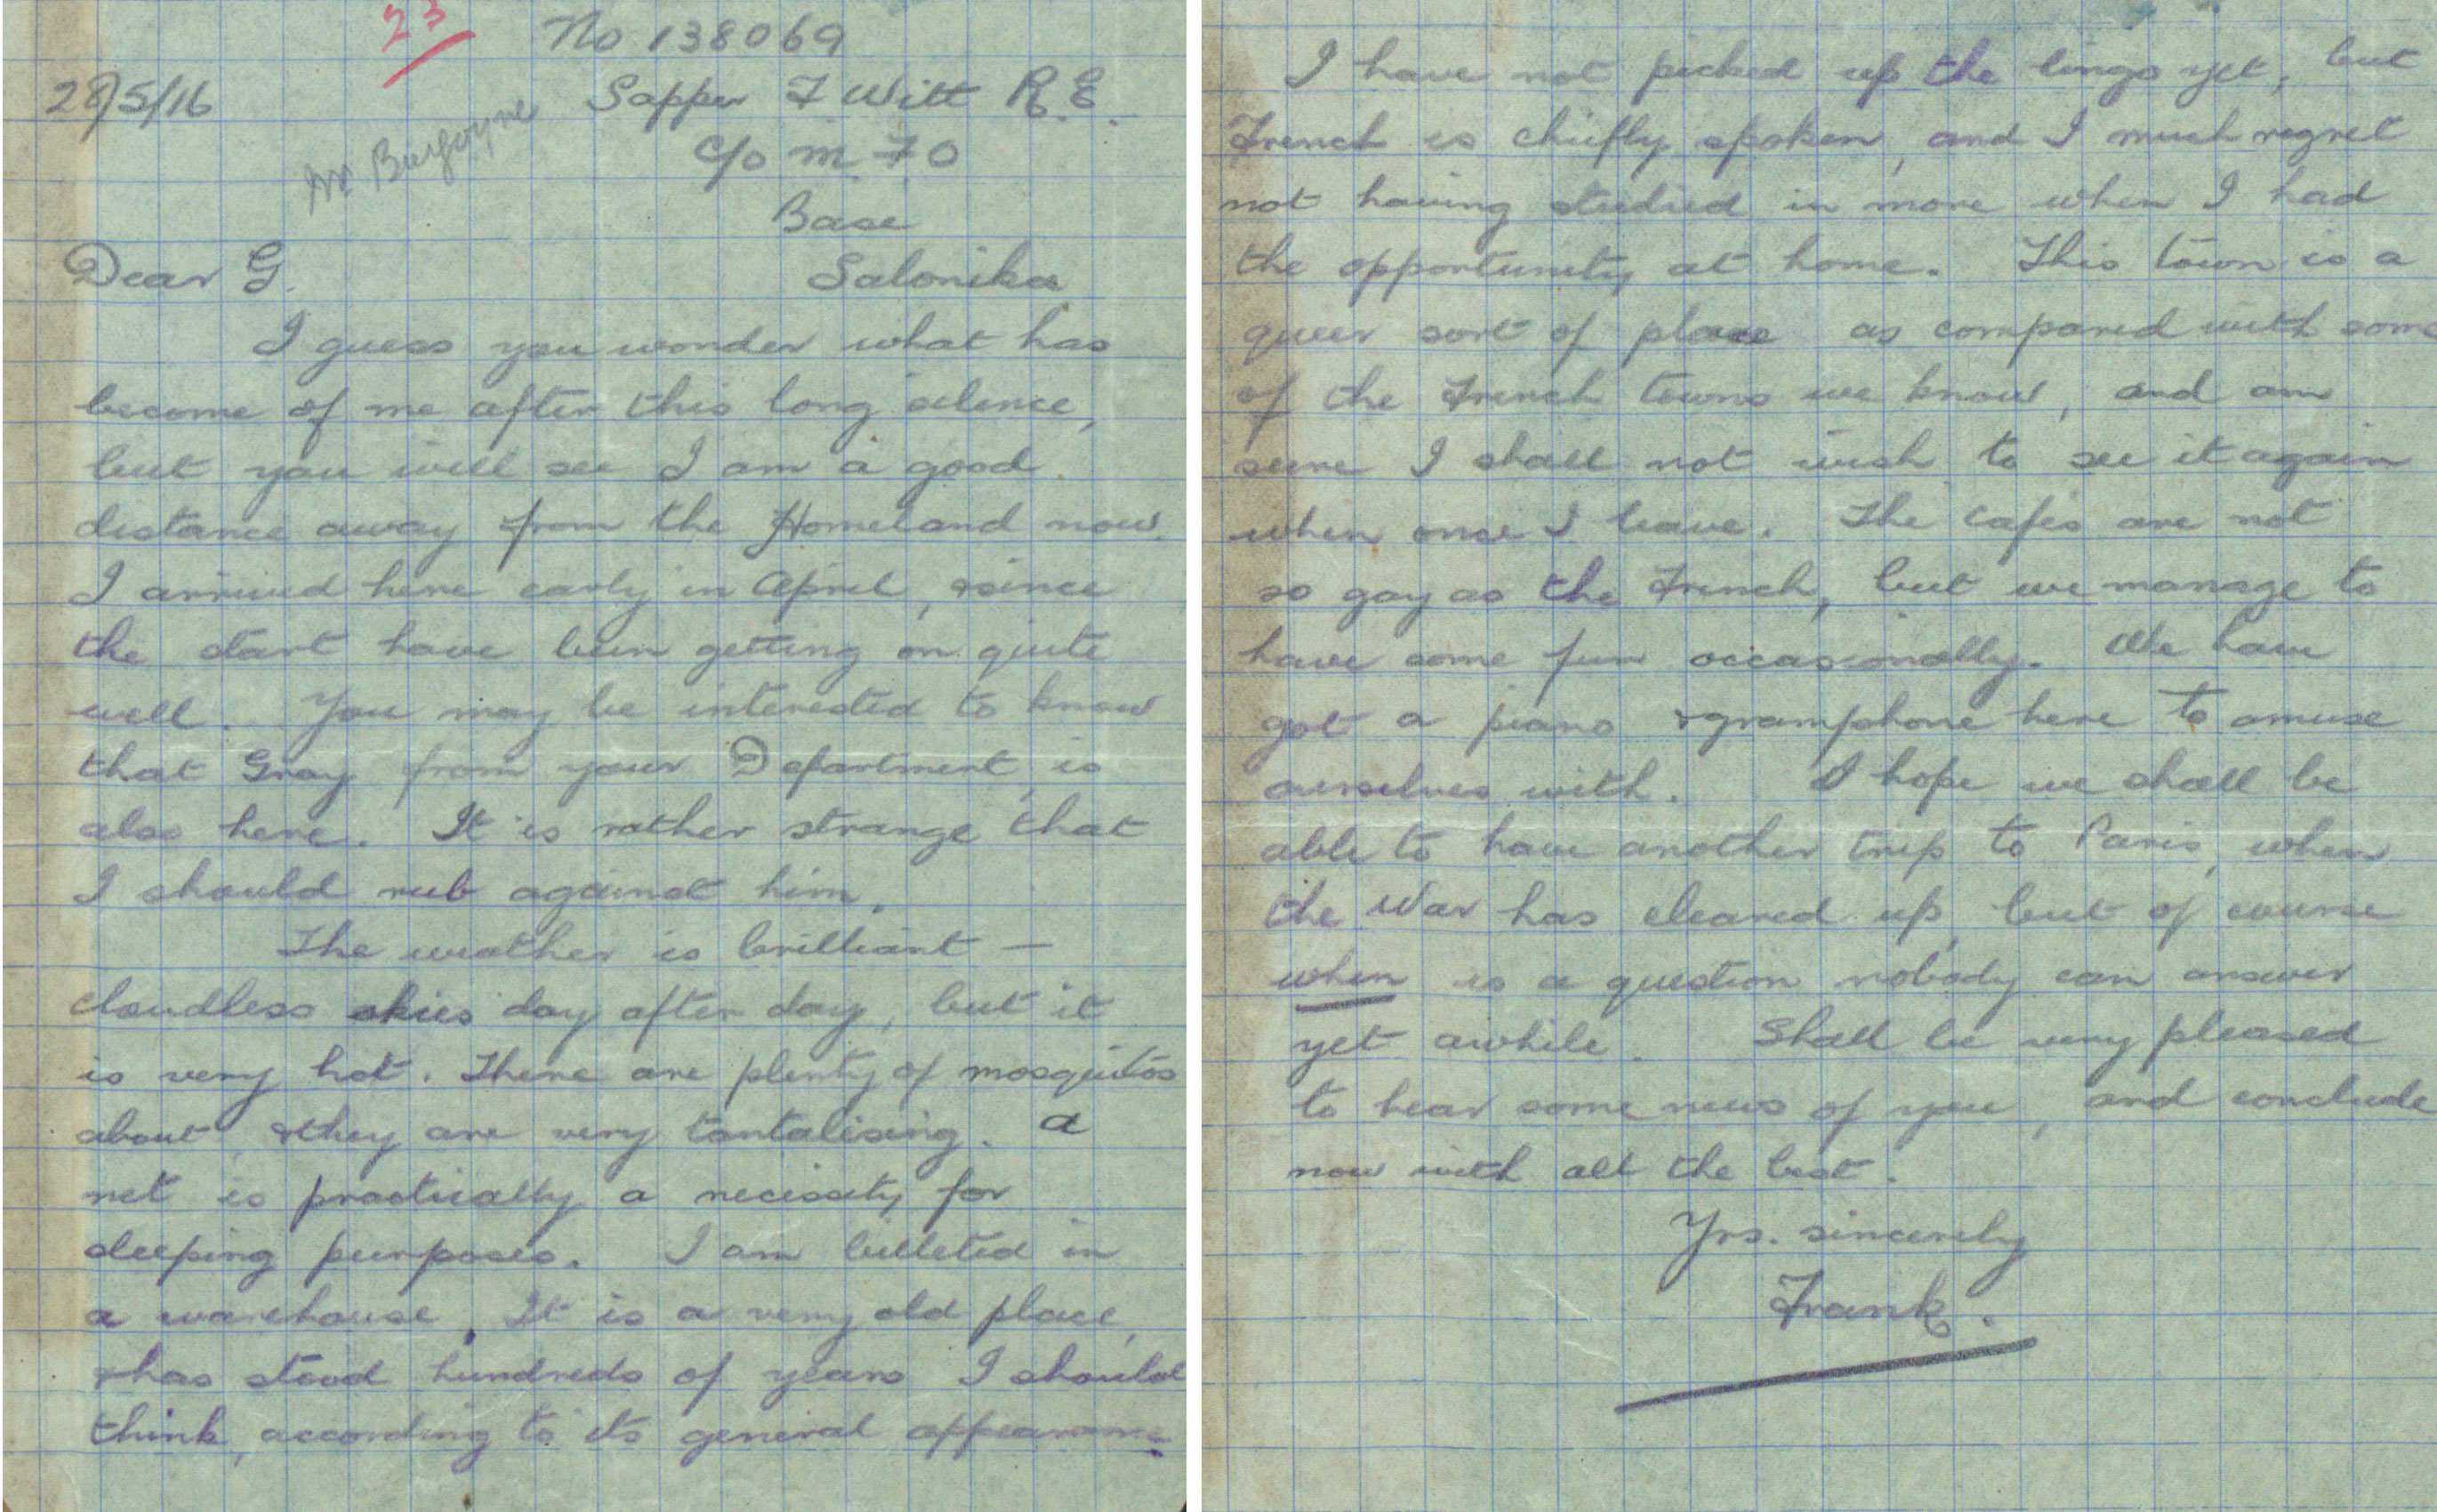 23
No 138069
28/5/16
Sapper F Witt R.E.
Mr Burgoyne
c/o M. 70
Base
Dear G.
Salonika
I guess you wonder what has
become of me after this long silence,
but you will see I am a good
distance away from the Homeland now.
I arrived here early in April, & since
the start have been getting on quite
well. You may be interested to know
that Gray from your Department, is
also here. It is rather strange that
I should rub against him.
The weather is brilliant —
cloudless skies day after day, but it
is very hot. There are plenty of mosquitos
about, & they are very tantalising. A
net is practically a necissity for
sleeping purposes. I am billeted in
a warehouse. It is a very old place,
& has stood hundreds of years I should
think, according to its general appearance.
I have not picked up the lingo yet, but
French is chiefly spoken, and I much regret
not having studied in more when I had
the opportunity at home. This town is a
queer sort of place as compared with some
of the French towns we know, and am
sure I shall not wish to see it again
when once I leave. The cafes are not
so gay as the French, but we manage to
have some fun occasionally. We have
got a piano & gramphone here to amuse
ourselves with. I hope we shall be
able to have another trip to Paris, when
the War has cleared up, but of course
when is a question nobody can answer
yet awhile. Shall be very pleased
to hear some news of you, and conclude
now with all the best.
Yrs. sincerely
Frank.